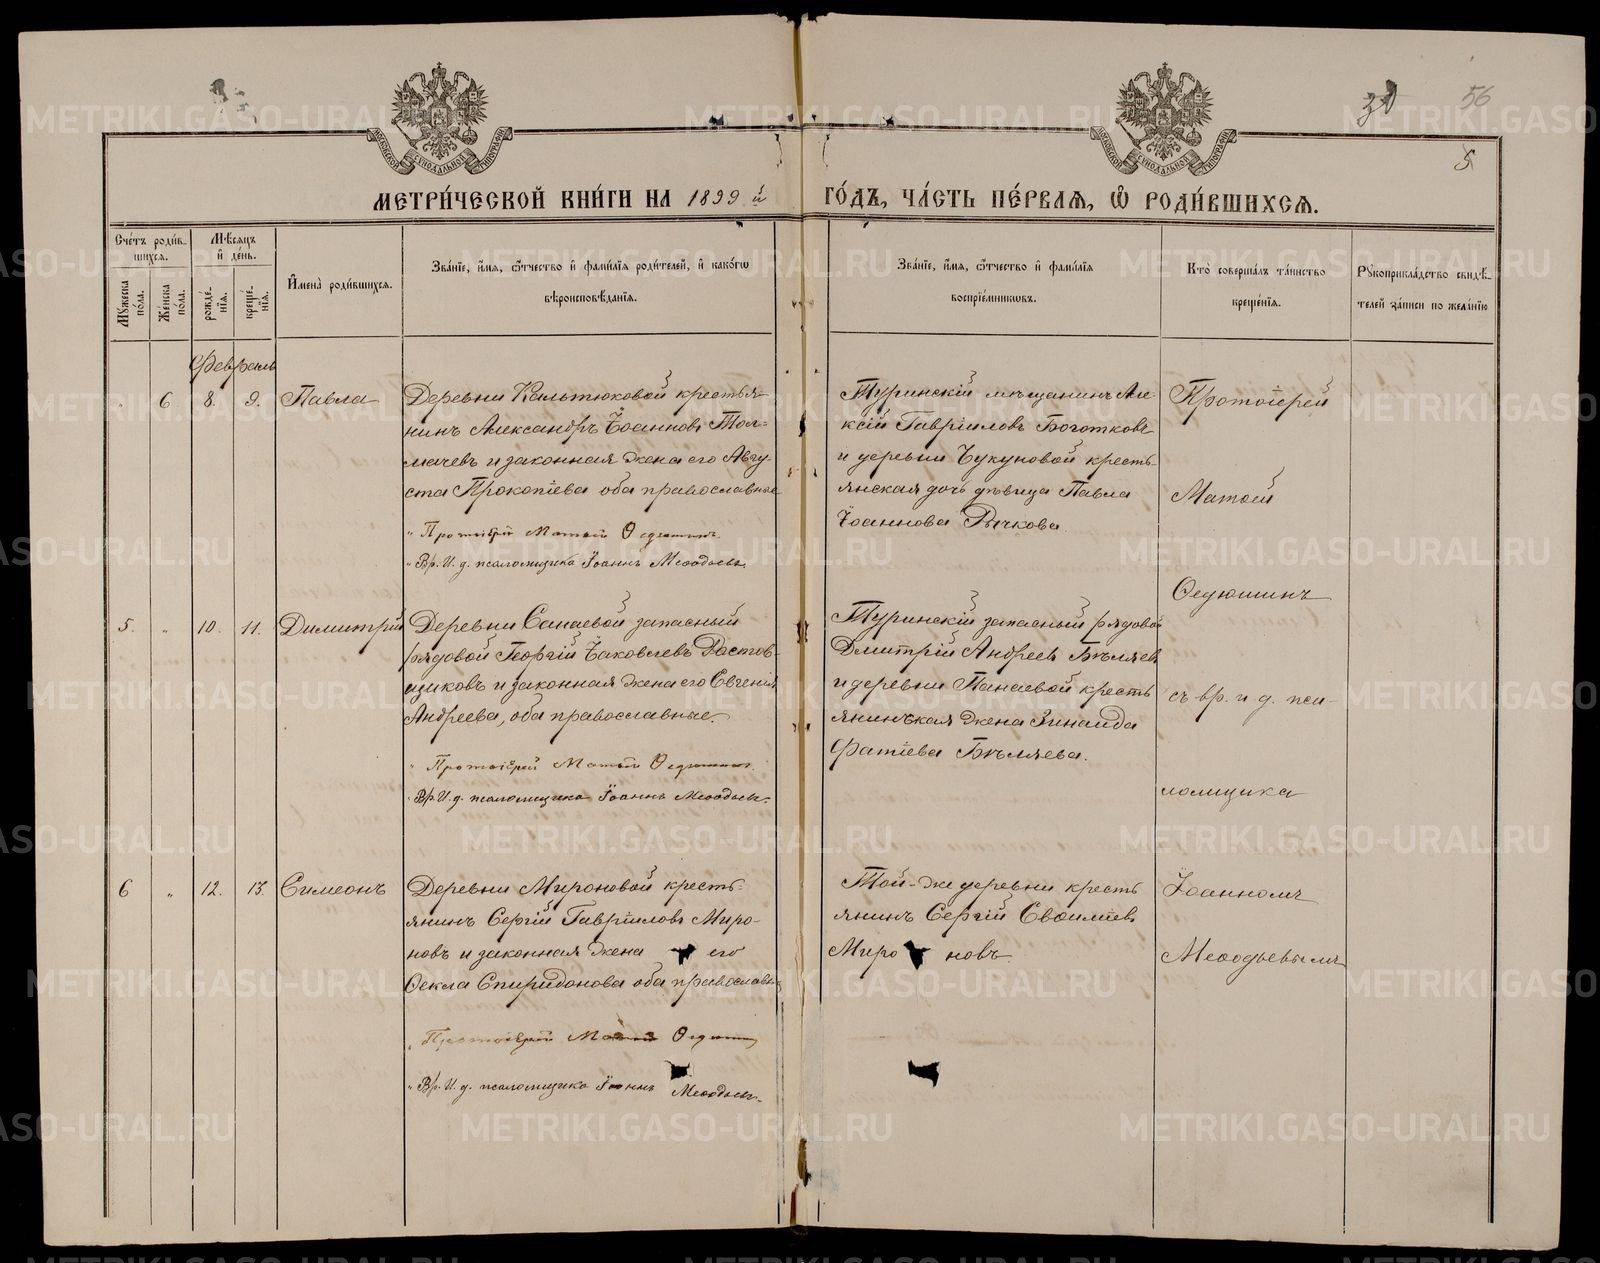 30 56
5
МЕТРИ́ЧЕСКОЙ КНИ́ГИ НА 1899 й ГО́ДЪ, ЧА́СТЬ ПЕ́РВАѦ, Ѽ РОДИ́ВШИХСѦ.
Сче́тъ роди́вшихсѧ.
Мѣ́сѧцъ и҆ де́нь.
Мꙋ́жеска по́ла.
Же́нска по́ла.
рожде́нїѧ.
креще́нїѧ.
И҆мена̀ роди́вшихсѧ.
Зва́нїе, и҆́мѧ, ѻ҆́тчество и҆ фами́лїѧ роди́телей, и҆ како́гѡ вѣроисповѣ́данїѧ.
Зва́нїе, и҆́мѧ, ѻ҆́тчество и҆ фами́лїѧ воспрїе́мникѡвъ.
Кто̀ соверша́лъ та́инство креще́нїѧ.
Рꙋкоприкла́дство свидѣ́телей за́писи по жела́нїю
Февраль
6 8. 9. Павла
Деревни Кальтюковой крестья-
нинъ Александръ Іоанновъ Тол-
мачевъ и законная жена его Авгу-
ста Прокопіева оба православные
" Протоіерей Матѳій Ѳедюшинъ.
" Вр. И. д. псаломщика Іоаннъ Меѳодьевъ.
Туринскій мѣщанинъ Але-
ксій Гавріиловъ Боготковъ
и деревни Чукуновой кресть-
янская дочь дѣвица Павла
Іоаннова Рычкова.
Протоіерей
Матѳій
Ѳедюшинъ
съ вр. и д. пса-
ломщика
Іоанномъ
Меѳодьевымъ
5. " 10. 11. Димитрій
Деревни Санаевой запасный
рядовой Георгій Іаковлевъ Растов-
щиковъ и законная жена его Евгенія
Андреева, оба православные.
" Протоіерей Матѳій Ѳедюшинъ.
" Вр. И. д. псаломщика Іоаннъ Меѳодьевъ.
Туринскій запасный рядовой
Дмитрій Андреевъ Бѣляевъ
и деревни Панаевой кресть
янинская жена Зинаида
Фатіева Бѣляева.
6 " 12. 13. Симеонъ
Деревни Мироновой кресть-
янинъ Сергій Гавріиловъ Миро-
новъ и законная жена его
Ѳекла Спиридонова оба православн.
" Протоіерей Матѳій Ѳедюшинъ
" Вр. И. д. псаломщика Іоаннъ Меѳодьевъ.
Той-же деревни кресть
янинъ Сергій Евсиліевъ
Миро новъ
METRIKI.GASO-URAL.RU